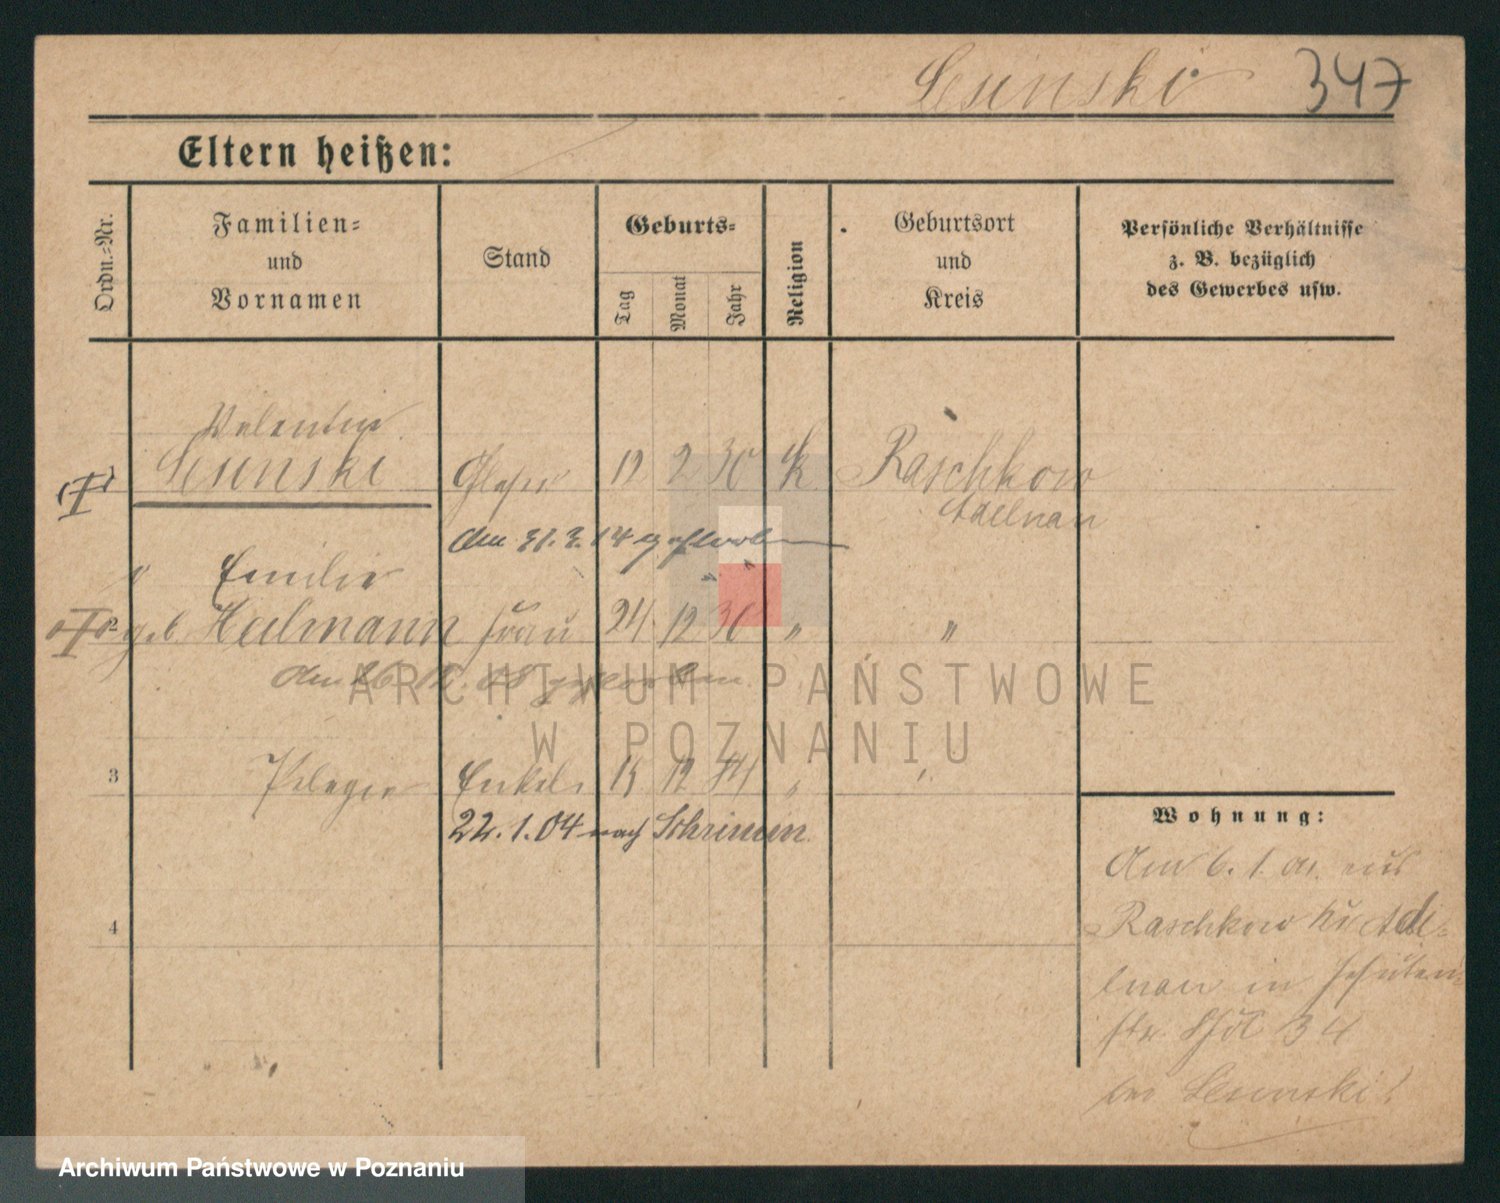 Lesinski 347
Eltern heißen:
Ordn.-Nr.
Familien-
und
Vornamen
Stand
Geburts-
Tag
Monat
Jahr
Religion
Geburtsort
und
Kreis
Persönliche Verhältnisse
z. B. bezüglich
des Gewerbes usw.
Valentin
Lesinski Glaser 12 2 30 k Raschkow
Adelnau
den 31.3.14 gestorben
" Emilie
2 geb. Heilmann Frau 24 12 30 " "
den 26. 12. 08 gestorben
3 Pelagia Enkel 12 "
22.1.04 nach Schrimm
4
Wohnung:
Am 6. 1. 01. aus
Raschkow Kr Adel-
nau in Schützen
str. 34
bei Lesinski
ARCHIWUM PAŃSTWOWE
W POZNANIU
Archiwum Państwowe w Poznaniu